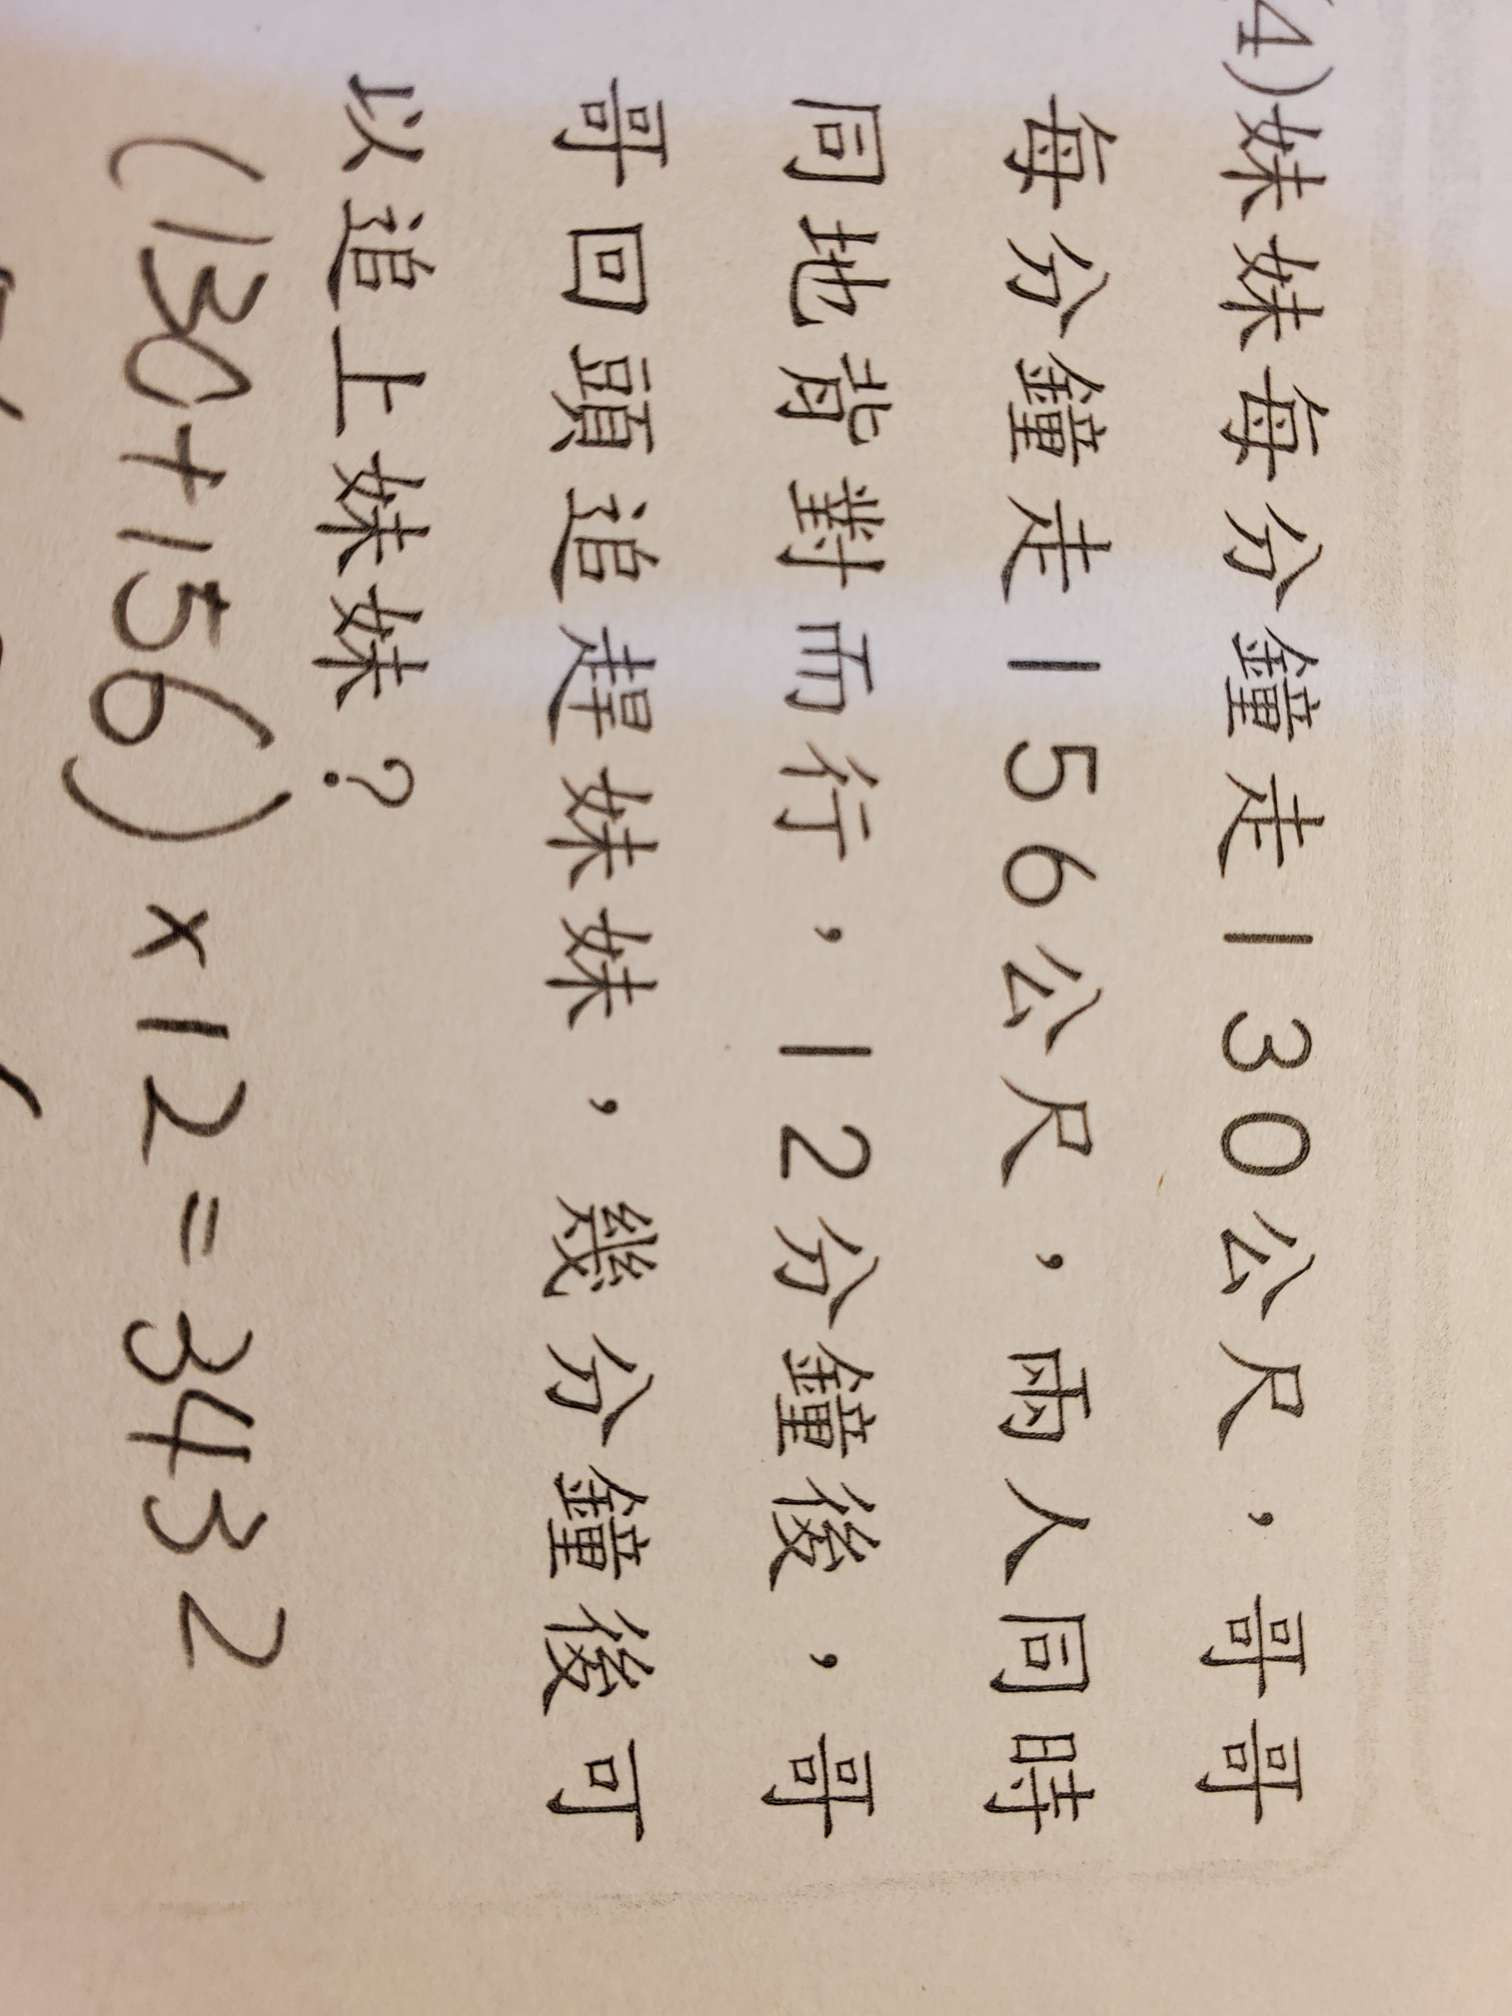 (4)妹妹每分鐘走130公尺，哥哥
每分鐘走156公尺，兩人同時
同地背對而行，12分鐘後，哥
哥回頭追趕妹妹，幾分鐘後可
以追上妹妹？
(130+156)×12=3432